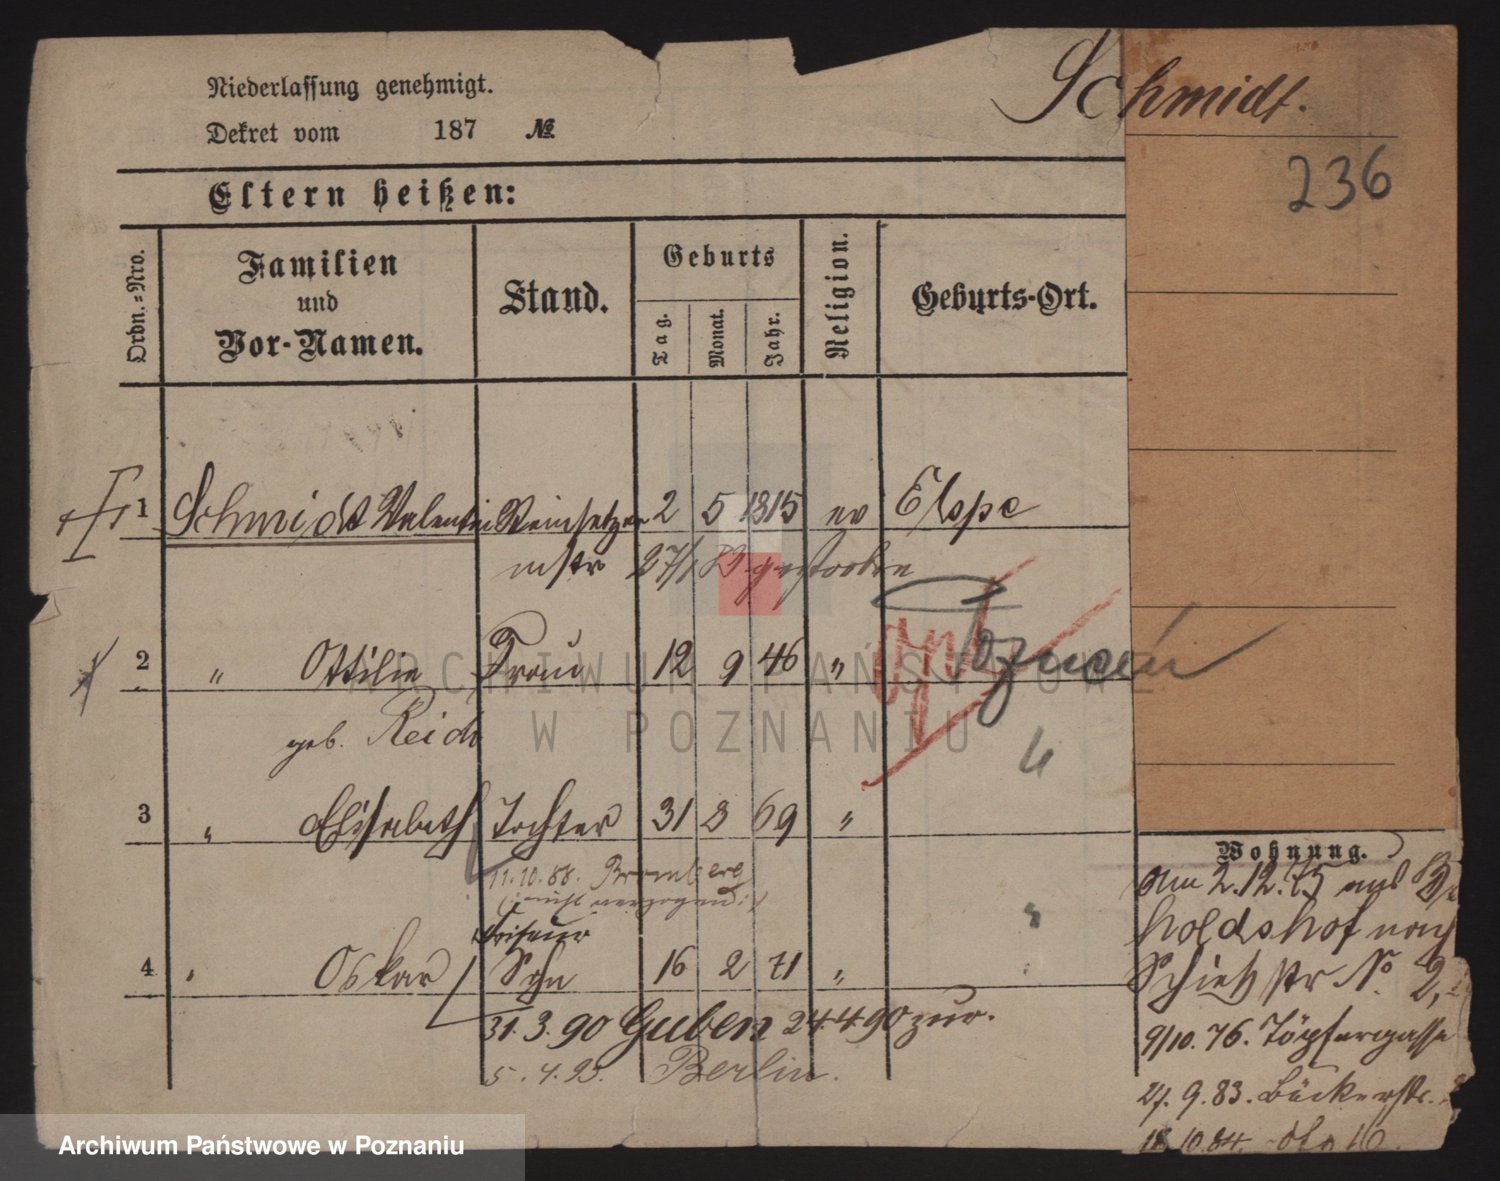 Niederlassung genehmigt.
Dekret vom 187 №
Schmidt.
236
Eltern heißen:
Ordn.-Nro.
Familien
und
Vor-Namen.
Stand.
Geburts
Tag.
Monat.
Jahr.
Religion.
Geburts-Ort.
1 Schmidt Valentin Steinsetzer 2 5 1815 ev
mstr 27/1 gestorben
2 " Ottilie Frau 12 9 46 "
geb.
3 " Elisabeth Tochter 31 8 69 "
11.10.88. Bromberg
(nicht verzogen)
Friseur
4 " Oskar Sohn 16 2 71 "
31.3.90 Guben 24.4.90 zur.
5.4.93. Berlin.
Posen
4
Wohnung.
Am 2.12.75 aus
holdshof nach
Schießstr No 2,
9/10.76. Töpfergasse
27.9.83. Bäckerstr.
18.10.84. 16.
ARCHIWUM PAŃSTWOWE
W POZNANIU
Archiwum Państwowe w Poznaniu